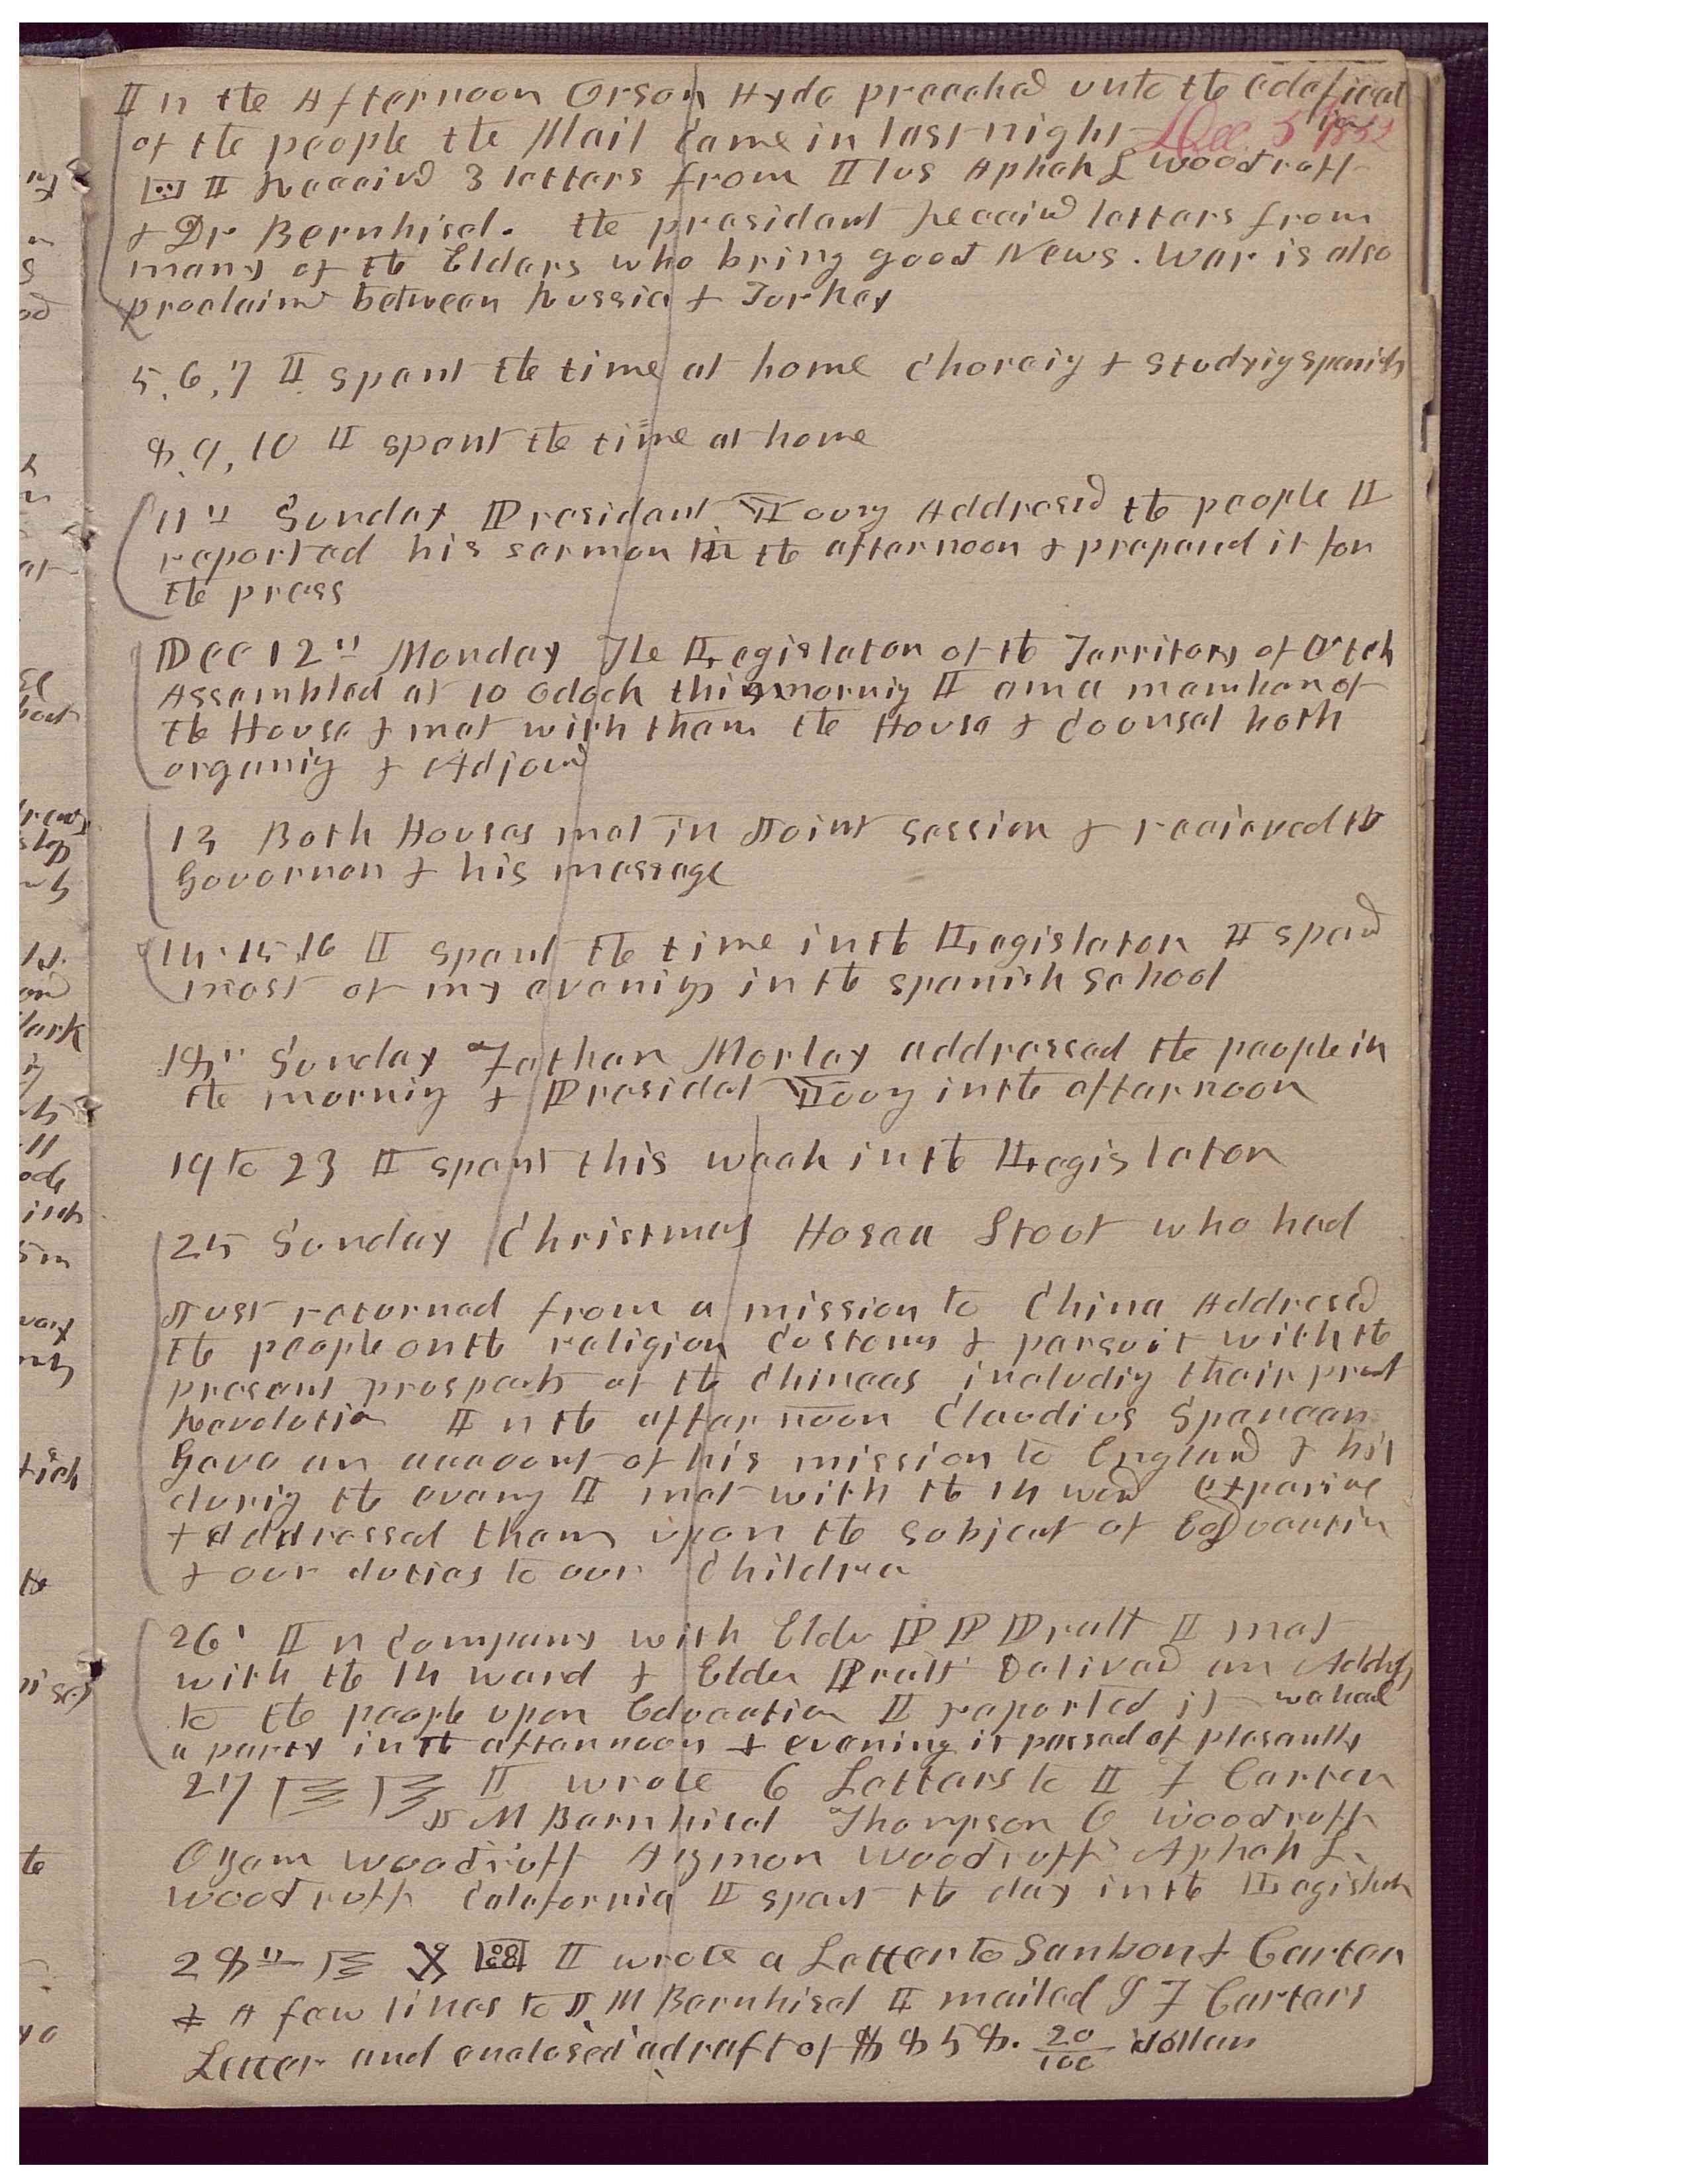 In the Afternoon Orson Hyde preached unto the edafication
of the people the Mail came in last night Dec. 5 1852
I Received 3 letters from Ilus Aphek L Woodruff
& Dr Bernhisel. the president Received letters from
many of the Elders who bring good News. War is also
proclaim between Russia & Turkey
5, 6, 7 I spent the time at home choreig & studyig spanish
8, 9, 10 I spent the time at home
11" Sunday President Young Addresed the people I
reported his sermon in the afternoon & prepared it for
the press
Dec 12" Monday The Legislator of the Territory of Utah
Assembled at 10 oclock this mornig I am a member of
the House & met with them the House & Counsel both
organig & Adjourd
13 Both Houses met in Joint session & recieved the
Governor & his message
14. 15. 16 I spent the time in the Legislator I spend
most of my evenigs in the spanish school
18" Sunday Father Morley addressed the people in
the mornig & Presidet Young in the afternoon
19 to 23 I spent this week in the Legislator
25 Sunday Christmas Hosea Stout who had
Just returned from a mission to China Addresed
the people on the religion Customs & persuit with the
present prospects of the Chinees includig their presnt
Revolution In the afternoon Claudius Spencer
Gave an account of his mission to England & his
durig the eveng I met with the 14 ward experiance
& Addressed them upon the subject of Education
& our duties to our Children
26' In company with Elder P P Pratt I met
with the 14 ward & Elder Pratt Deliverd an Address
to the people upon Education I reported it we had
a party in the afternoon & evening it passed of plesantly
27 I wrote 6 Letters to I F Carter
J M Bernhisel Thompson O Woodruff
Ozem Woodruff Azmon Woodruff Aphek L.
Woodruff Calafornia I spent the day in the Legislator
28" I wrote a Letter to Sanborn & Carter
& A few lines to J. M Bernhisel I mailed I F Carters
Letter and enclosed a draft of $858. 20/100 dollars